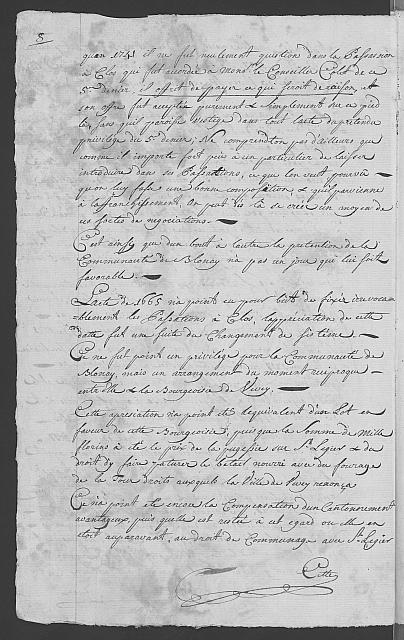 8
quan 1741 il ne fut neulement question dans la Passasion
à Clos qui fut accordée à Mons.r le Conseiller Colet de ce
5.e denier, il offrit de payer ce qui seroit de raison, et
son offre fut acceptée purement & simplement sur ce pied
là, sans qu'il paroisse vestige dans tout l'acte du prétendu
privilège du 5.e denier; Ne comprend on pas d'ailleurs que
comme il importe fort peu à un particulier de laisser
introduire dans ses Passations, ce que l'on veut pourvû
qu'on luy fasse une bonne composition & qu'il parvienne
à l'affranchissement. On peut dès là se créer un moyen de
ces sortes de negociations.
C'est ainsy que d'un bout à l'autre la pretention de la
Communauté de Blonay n'a pas un jour qui lui soit
favorable.
L'acte de 1665 n'a point eu pour but de fixer irrevoca-
-blement les Passations à Clos, l'appreciation de cette
datte fut une suite du Changement de sistème.
Ce ne fut point un privilège pour la Communauté de
Blonay, mais un arrangement du moment reciproque
entr'elle & la Bourgeoisie de Vevey.
Cette apreciation n'a point été l'equivalent d'un Lot en
faveur de cette Bourgeoisie, puis que la Somme de Mille
florins a été le prix de la sur S.t Legier & du
droit d'y faire paturer le betail nourri avec du fourage
de la Tour droits auxquels la Ville de Vevey renonça
Ce n'a point été encore la Compensation d'un Cantonnement
avantageux, puis qu'elle est restée à cet egard ou elle en
etoit auparavant, au droit de Communage avec S.t Legier
Cette